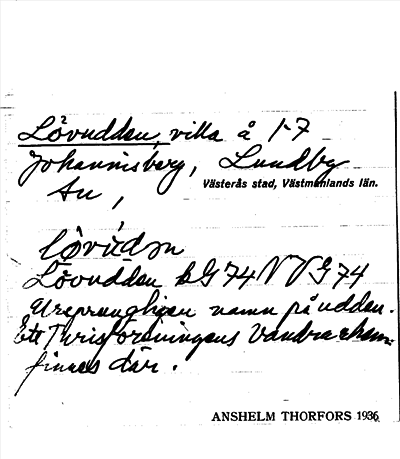 Lövudden, villa å 1-7
Johannisberg, Lundby
Västerås stad, Västmanlands län.
An,
Lövudden bG74NVG74
Ursprungligen namn på udden.
Ett Turistföreningens Vandrarhem
finnes där.
ANSHELM THORFORS 1936